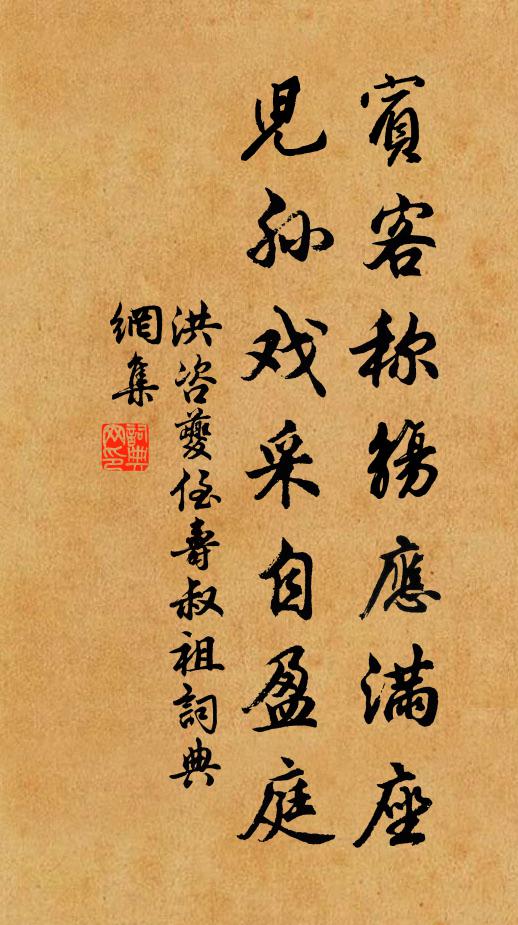 賓客称觴應满座
兒孙戏采自盈庭
洪咨夔侄壽叔祖詞典
網集
詞典
网印